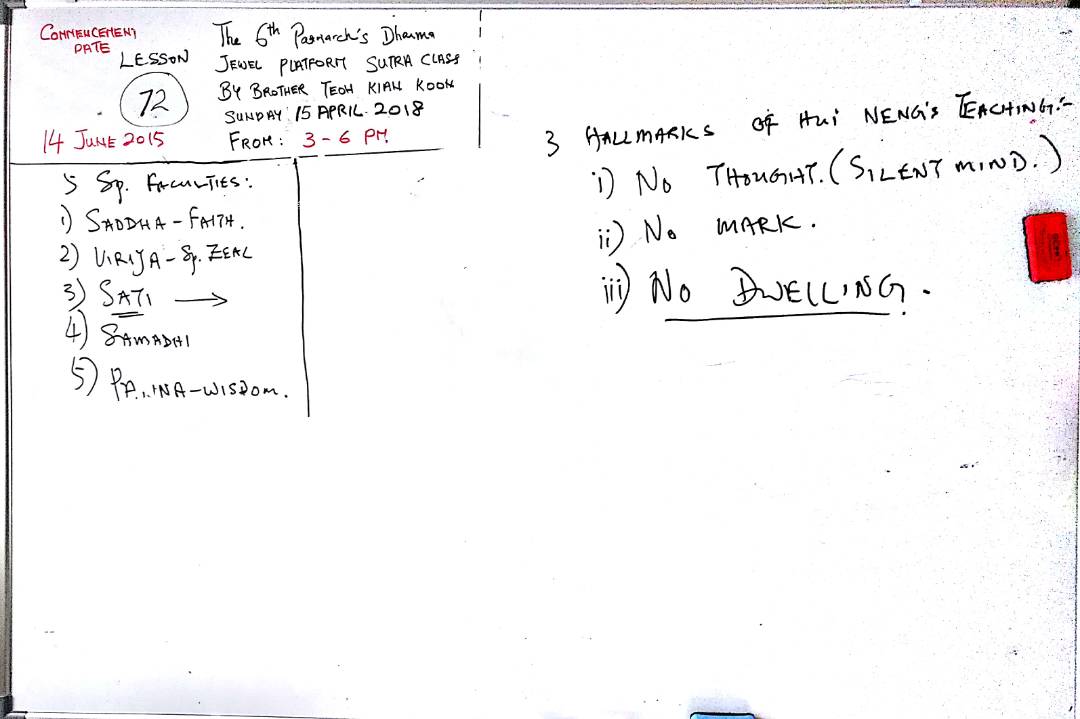 COMMENCEMENT
DATE
LESSON
72
14 JUNE 2015
The 6th Patriarch's Dharma
JEWEL PLATFORM SUTRA CLASS
BY BROTHER TEOH KIAN KOON
SUNDAY: 15 APRIL 2018
FROM: 3-6 PM
5 Sp. FACULTIES:
1) SADDHA - FAITH.
2) VIRIYA - Sp. ZEAL
3) SATI →
4) SAMADHI
5) PANNA - WISDOM.
3 HALLMARKS OF HUI NENG'S TEACHING:-
i) No THOUGHT. (SILENT MIND.)
ii) No MARK.
iii) No DWELLING.